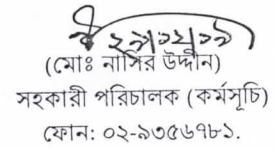 ২৯/১২/১৯
(মোঃ নাসির উদ্দীন)
সহকারী পরিচালক (কর্মসূচি)
ফোন: ০২-৯৩৫৬৭৮১.